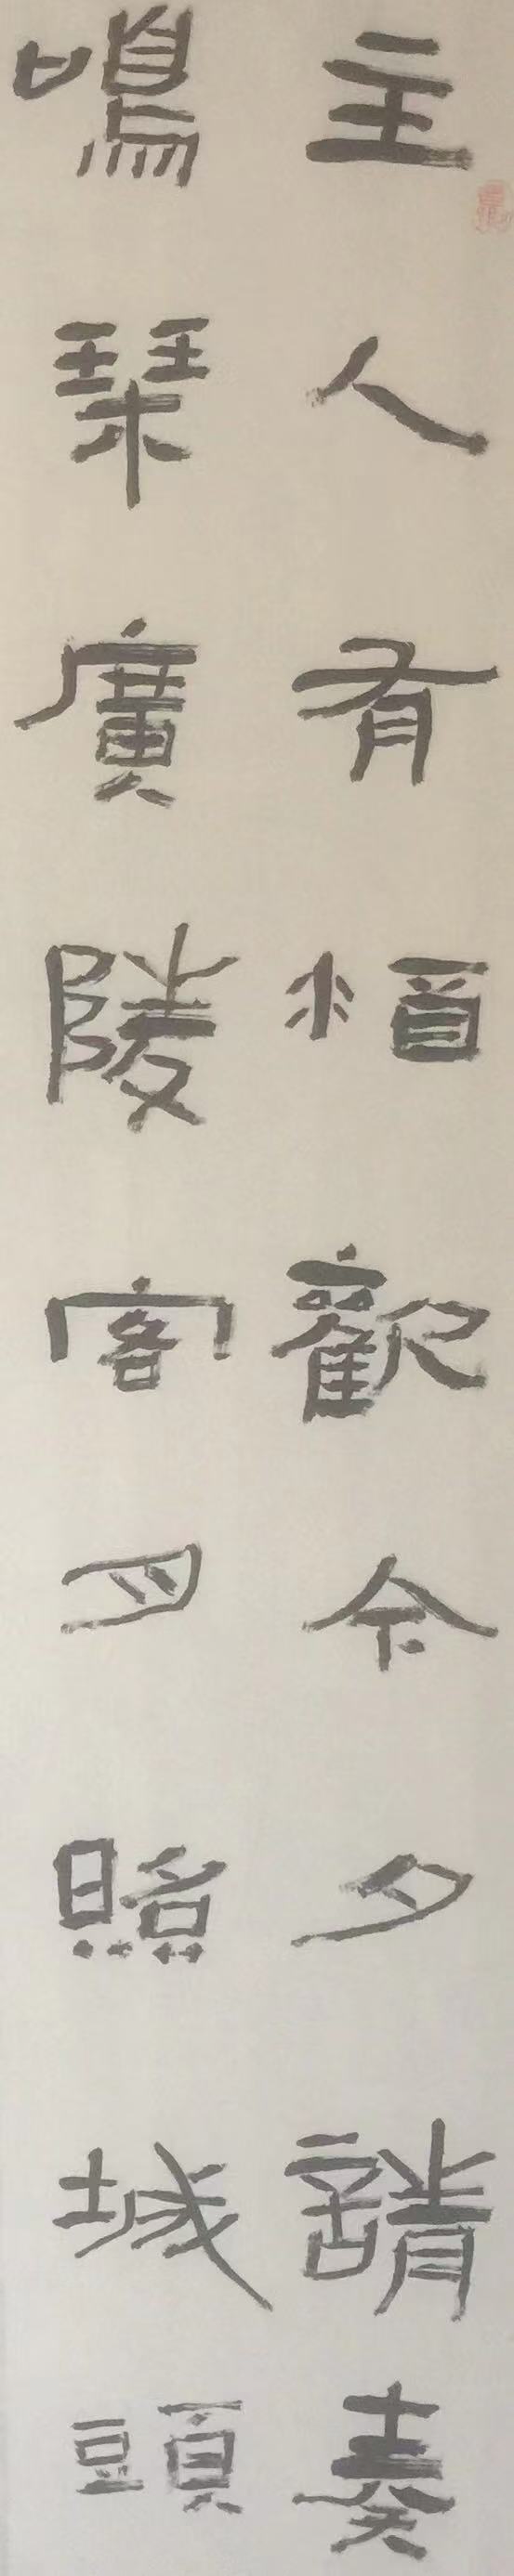 主人有酒歡今夕請奏
鳴琹廣陵客月照城頭